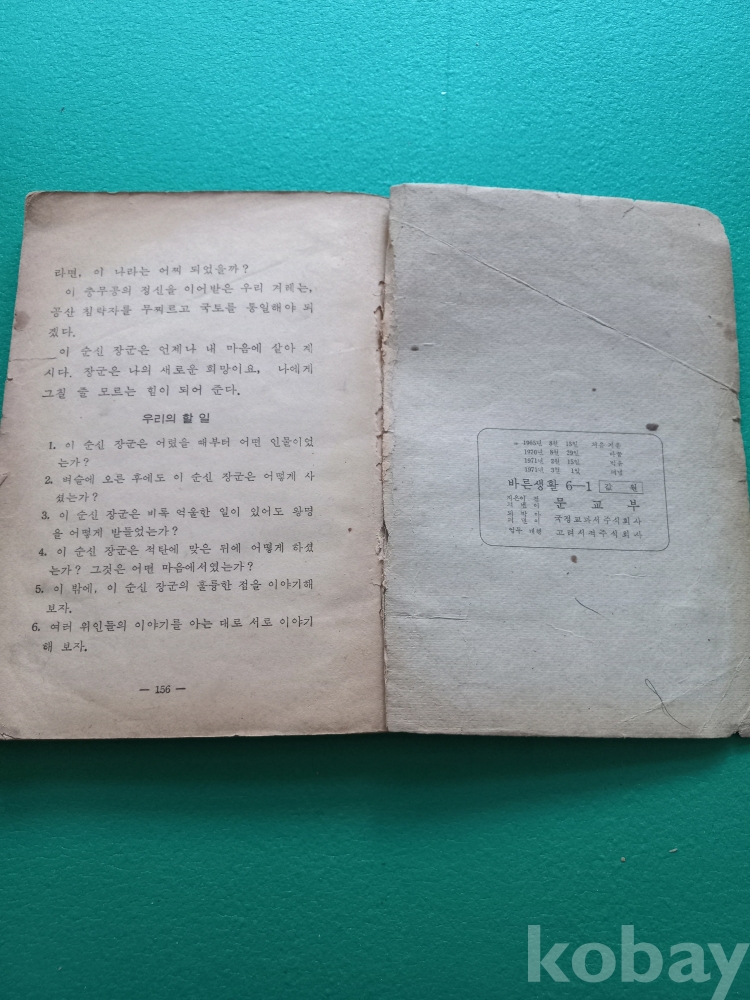 라면, 이 나라는 어찌 되었을까?
이 충무공의 정신을 이어받은 우리 겨레는,
공산 침략자를 무찌르고 국토를 통일해야 되
겠다.
이 순신 장군은 언제나 내 마음에 살아 계
시다. 장군은 나의 새로운 희망이요, 나에게
그칠 줄 모르는 힘이 되어 준다.
우리의 할 일
1. 이 순신 장군은 어렸을 때부터 어떤 인물이었
는가?
2. 벼슬에 오른 후에도 이 순신 장군은 어떻게 사
셨는가?
3. 이 순신 장군은 비록 억울한 일이 있어도 왕명
을 어떻게 받들었는가?
4. 이 순신 장군은 적탄에 맞은 뒤에 어떻게 하셨
는가? 그것은 어떤 마음에서였는가?
5. 이 밖에, 이 순신 장군의 훌륭한 점을 이야기해
보자.
6. 여러 위인들의 이야기를 아는 대로 서로 이야기
해 보자.
— 156 —
1965년
1970년
1971년
1971년 3월 1일
바른생활 6—1
문교부
국정교과서주식회사
고려서적주식회사
kobay